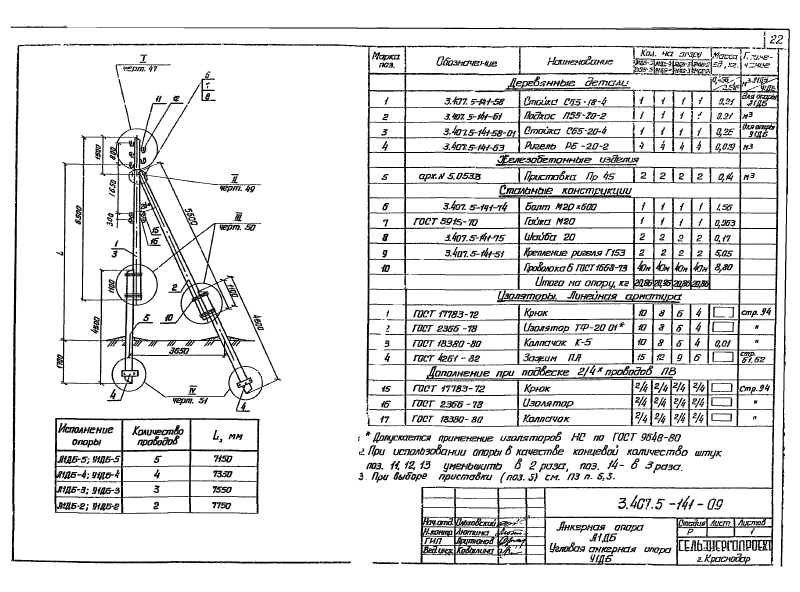 22
I
черт. 47
11 12
6
7
8
II
черт. 49
III
черт. 50
5500
6500
1650
300
L
1
3
15
16
2
10
5
1100
1100
4500
4500
3650
1700
4
4
IV
черт. 51
Исполнение опоры Количество проводов L, мм
А1ДБ-5; У1ДБ-5 5 7150
А1ДБ-4; У1ДБ-4 4 7350
А1ДБ-3; У1ДБ-3 3 7550
А1ДБ-2; У1ДБ-2 2 7750
Марка поз. Обозначение Наименование Кол. на опору Масса ед., кг. Приме-чание
Деревянные детали
1 3.407.5-141-58 Стойка С65-18-4 1 1 1 1 0,21 для опоры А1ДБ
2 3.407.5-141-61 Подкос П35-20-2 1 1 1 1 0.21 м³
3 3.407.5-141-58-01 Стойка С65-20-4 1 1 1 1 0,25 для опоры У1ДБ
4 3.407.5-141-63 Ригель Р6-20-2 4 4 4 4 0,019 м³
Железобетонные изделия
5 арх.N 5.0533 Приставка Пр 45 2 2 2 2 0,14 м³
Стальные конструкции
6 3.407.5-141-74 Болт М20×600 1 1 1 1 1,56
7 ГОСТ 5915-70 Гайка М20 1 1 1 1 0,063
8 3.407.5-141-75 Шайба 20 2 2 2 2 0,17
9 3.407.5-141-51 Крепление ригеля Г153 2 2 2 2 5,05
10 Проволока 6 ГОСТ 1668-73 40м 40м 40м 40м 8,80
Итого на опору, кг 20,86 20,86 20,86 20,86
Изоляторы. Линейная арматура
1 ГОСТ 17783-72 Крюк 10 8 6 4 стр. 94
2 ГОСТ 2366-78 Изолятор ТФ-20 01* 10 8 6 4 "
3 ГОСТ 18380-80 Колпачок К-5 10 8 6 4 0,01 "
4 ГОСТ 4261-82 Зажим ПА 15 12 9 6 стр. 61.62
Дополнение при подвеске 2/4* проводов ПВ
15 ГОСТ 17783-72 Крюк 2/4 2/4 2/4 2/4 Стр. 94
16 ГОСТ 2366-78 Изолятор 2/4 2/4 2/4 2/4 "
17 ГОСТ 18380-80 Колпачок 2/4 2/4 2/4 2/4 "
1 * Допускается применение изоляторов НС по ГОСТ 9648-80
2. При использовании опоры в качестве концевой количество штук
поз. 11, 12, 13 уменьшить в 2 раза, поз. 14- в 3 раза.
3. При выборе приставки (поз. 5) см. ПЗ п. 5,3.
3.407.5-141-09
Нач.отд.
Н.контр. Лютина
ГИП
Вед.инж. Ковалина
Анкерная опора
А1ДБ
Угловая анкерная опора
У1ДБ
Стадия Лист Листов
Р 1
СЕЛЬЭНЕРГОПРОЕКТ
г. Краснодар